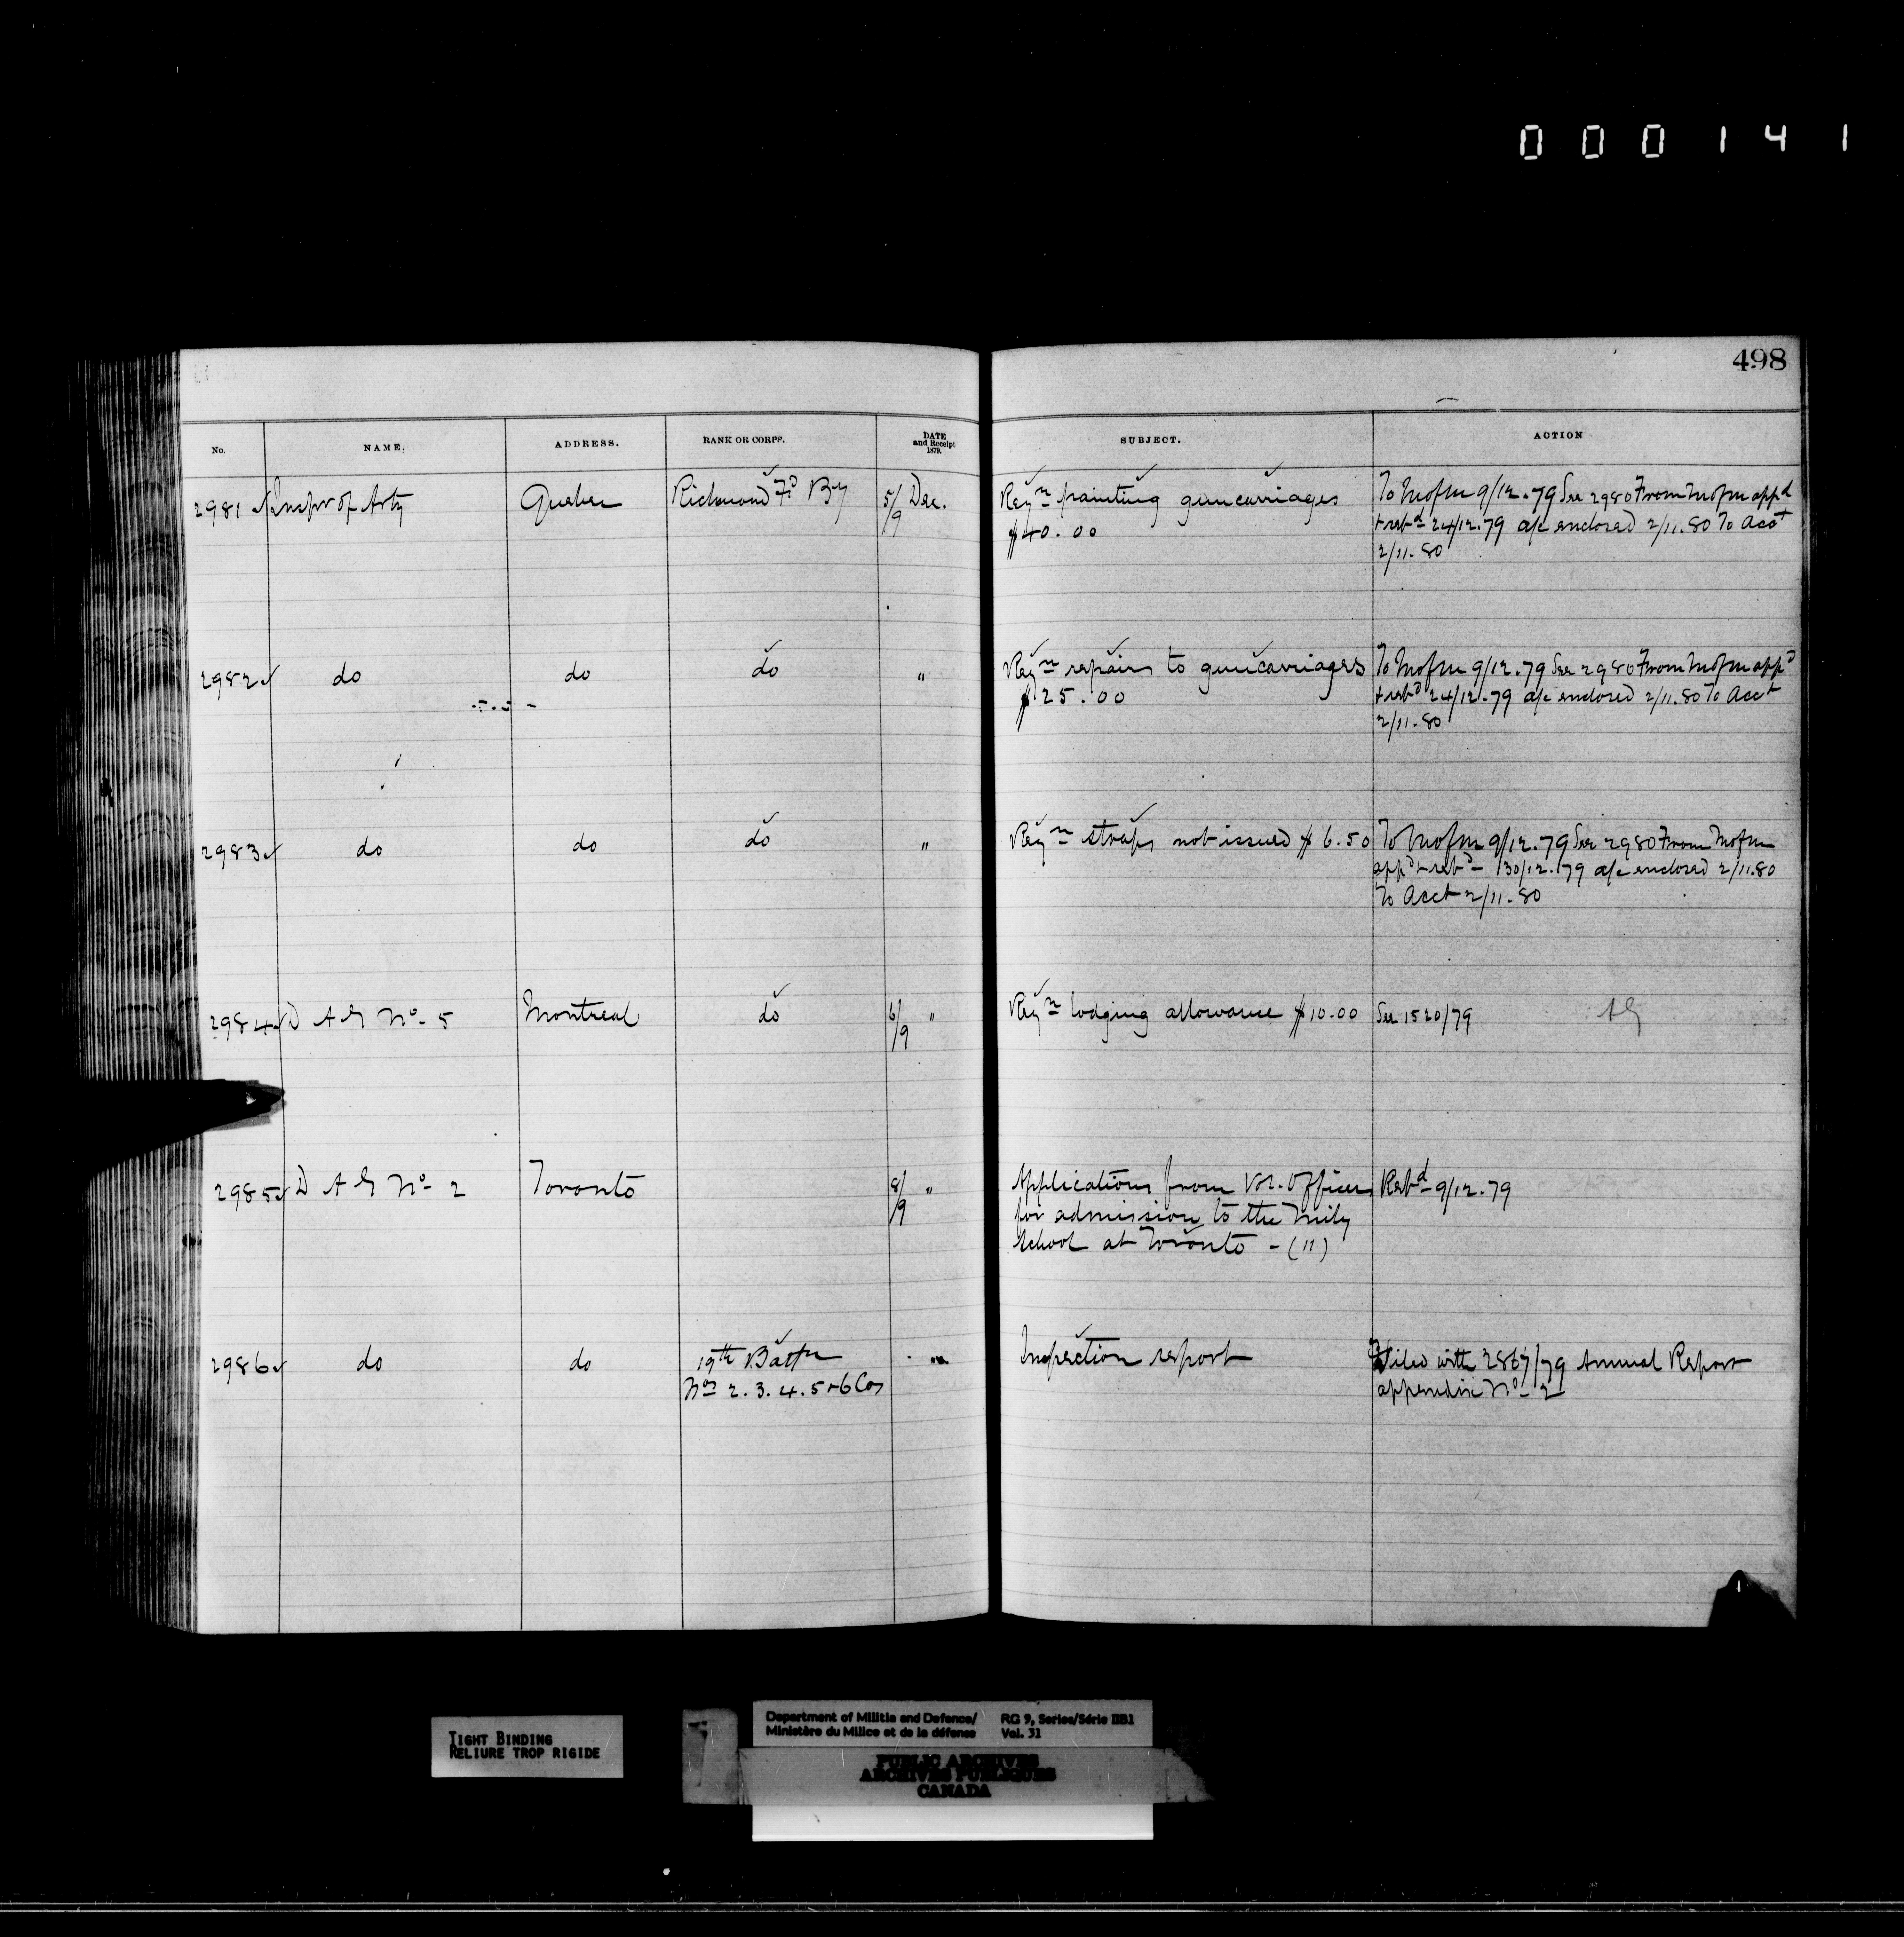 000141
498
No. NAME. ADDRESS. RANK OR CORPS. DATE and Receipt 1879. SUBJECT. ACTION
2981 Inspr of Arty Quebec Richmond Fd By 5/9 Dec. Reqn painting guncarriages To M of M 9/12.79 See 2980 From M of M appd
$40.00 + retd 24/12.79 a/c enclosed 2/11.80 To Acct
2/11.80
2982 do do do " Reqn repairs to guncarriages To M of M 9/12.79 See 2980 From M of M appd
$25.00 + retd 24/12.79 a/c enclosed 2/11.80 To Acct
2/11.80
2983 do do do " Reqn straps not issued $6.50 To M of M 9/12.79 See 2980 From M of M
appd + retd 30/12.79 a/c enclosed 2/11.80
To Acct 2/11.80
2984 D A G No. 5 Montreal do 6/9 " Reqn lodging allowance $10.00 See 1520/79 AG
2985 D A G No. 2 Toronto 8/9 " Applications from Vol. Officers Retd 9/12.79
for admission to the Mily
School at Toronto - (11)
2986 do do 19th Battn " Inspection report Filed with 2867/79 Annual Report
Nos 2.3.4.5+6 Cos appendix No. 2
TIGHT BINDING
RELIURE TROP RIGIDE
Department of Militia and Defence/ RG 9, Series/Série IIB1
Ministère du Milice et de la défense Vol. 31
PUBLIC ARCHIVES
ARCHIVES PUBLIQUES
CANADA